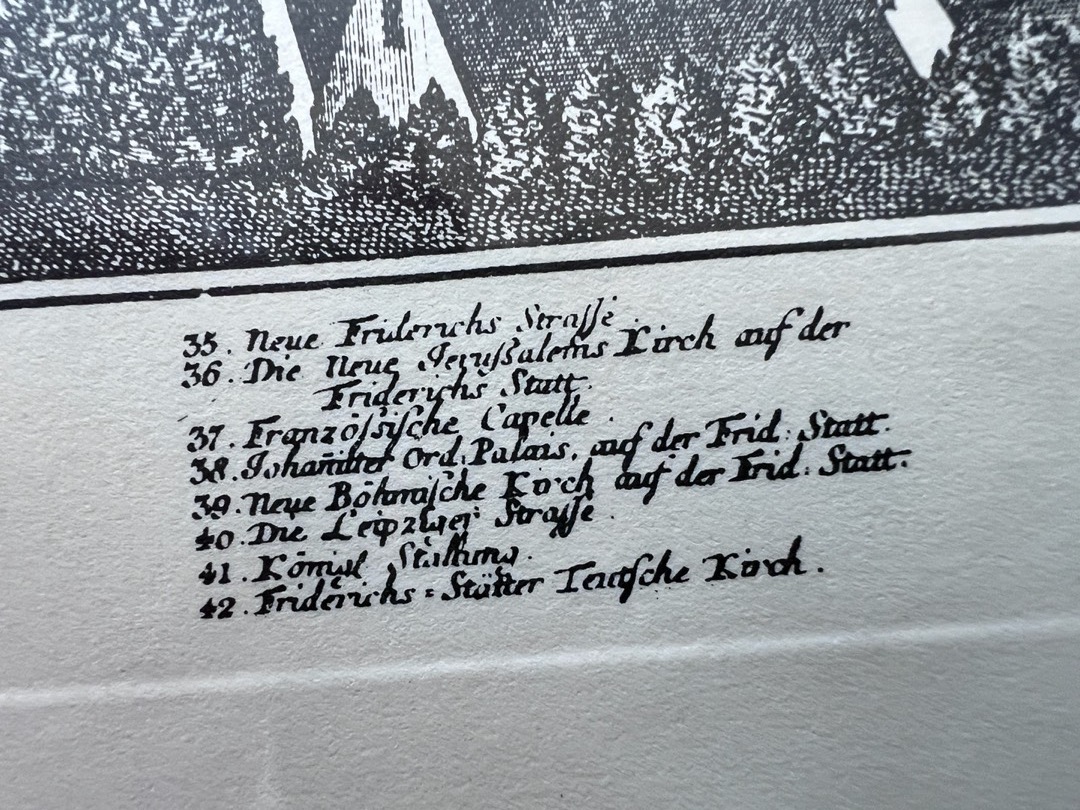 35. Neue Friderichs Strasse.
36. Die Neue Jerußalems Kirch auf der
Friderichs Statt.
37. Französsische Capelle.
38. Johanitter Ord. Palais, auf der Frid: Statt.
39. Neue Böhmische Kirch auf der Frid: Statt.
40. Die Leipziger Strasse.
41. Königl Stallung.
42. Friderichs=Stätter Teutsche Kirch.